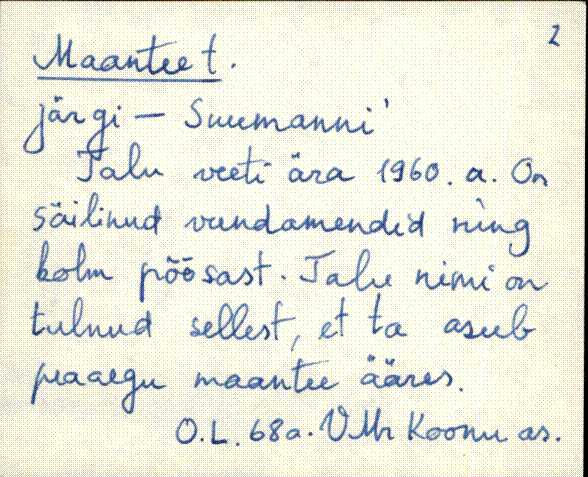 2
Maantee t.
järgi – Suumanni'
Talu veeti ära 1960. a. On
säilinud vundamendid ning
kolm põõsast. Talu nimi on
tulnud sellest, et ta asub
peaaegu maantee ääres.
O.L. 68a. VMr Koonu as.